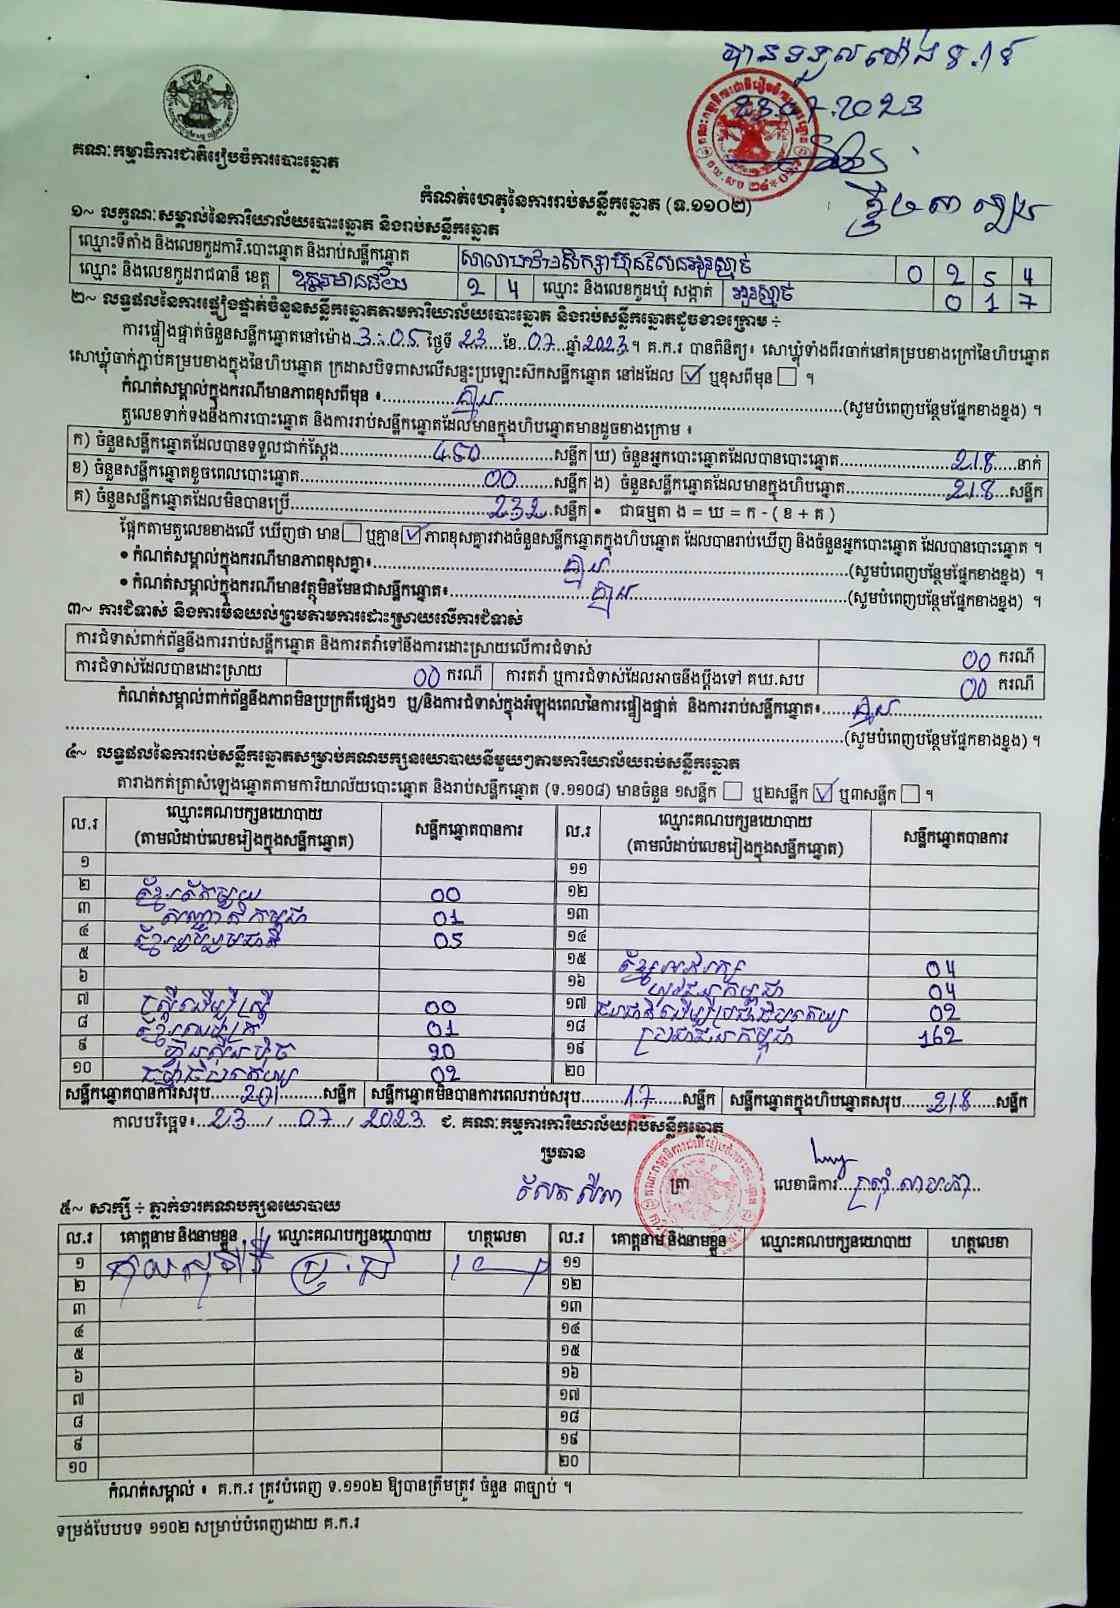 បានទទួលម៉ោង
23.07.2023
គណៈកម្មាធិការជាតិរៀបចំការបោះឆ្នោត
កំណត់ហេតុនៃការរាប់សន្លឹកឆ្នោត (ទ.១១០២)
១~ លក្ខណៈសម្គាល់នៃការិយាល័យបោះឆ្នោត និងរាប់សន្លឹកឆ្នោត
ឈ្មោះទីតាំង និងលេខកូដការិ.បោះឆ្នោត និងរាប់សន្លឹកឆ្នោត សាលាបឋមសិក្សាហ៊ុនសែនអូរស្មាច់ 0 2 5 4
ឈ្មោះ និងលេខកូដរាជធានី ខេត្ត ឧត្តរមានជ័យ 2 4 ឈ្មោះ និងលេខកូដឃុំ សង្កាត់ អូរស្មាច់ 0 1 7
២~ លទ្ធផលនៃការផ្ទៀងផ្ទាត់ចំនួនសន្លឹកឆ្នោតតាមការិយាល័យបោះឆ្នោត និងរាប់សន្លឹកឆ្នោតដូចខាងក្រោម ÷
ការផ្ទៀងផ្ទាត់ចំនួនសន្លឹកឆ្នោតនៅម៉ោង 3:05 ថ្ងៃទី 23 ខែ 07 ឆ្នាំ 2023 ។ គ.ក.រ បានពិនិត្យ៖ សោឃ្លុំទាំងពីរចាក់នៅគម្របខាងក្រៅនៃហិបឆ្នោត
សោឃ្លុំចាក់ភ្ជាប់គម្របខាងក្នុងនៃហិបឆ្នោត ក្រដាសបិទពាសលើសន្ទះប្រឡោះសិកសន្លឹកឆ្នោត នៅដដែល ☑ ឬខុសពីមុន ☐ ។
កំណត់សម្គាល់ក្នុងករណីមានភាពខុសពីមុន ៖ គ្មាន (សូមបំពេញបន្ថែមផ្នែកខាងខ្នង) ។
តួលេខទាក់ទងនឹងការបោះឆ្នោត និងការរាប់សន្លឹកឆ្នោតដែលមានក្នុងហិបឆ្នោតមានដូចខាងក្រោម ៖
ក) ចំនួនសន្លឹកឆ្នោតដែលបានទទួលជាក់ស្តែង 450 សន្លឹក ឃ) ចំនួនអ្នកបោះឆ្នោតដែលបានបោះឆ្នោត 218 នាក់
ខ) ចំនួនសន្លឹកឆ្នោតខូចពេលបោះឆ្នោត 00 សន្លឹក ង) ចំនួនសន្លឹកឆ្នោតដែលមានក្នុងហិបឆ្នោត 218 សន្លឹក
គ) ចំនួនសន្លឹកឆ្នោតដែលមិនបានប្រើ 232 សន្លឹក • ជាធម្មតា ង = ឃ = ក - ( ខ + គ )
ផ្អែកតាមតួលេខខាងលើ ឃើញថា មាន ☐ ឬគ្មាន ☑ ភាពខុសគ្នារវាងចំនួនសន្លឹកឆ្នោតក្នុងហិបឆ្នោត ដែលបានរាប់ឃើញ និងចំនួនអ្នកបោះឆ្នោត ដែលបានបោះឆ្នោត ។
• កំណត់សម្គាល់ក្នុងករណីមានភាពខុសគ្នា៖ គ្មាន (សូមបំពេញបន្ថែមផ្នែកខាងខ្នង) ។
• កំណត់សម្គាល់ក្នុងករណីមានវត្ថុមិនមែនជាសន្លឹកឆ្នោត៖ គ្មាន (សូមបំពេញបន្ថែមផ្នែកខាងខ្នង) ។
៣~ ការជំទាស់ និងការមិនយល់ព្រមតាមការដោះស្រាយលើការជំទាស់
ការជំទាស់ពាក់ព័ន្ធនឹងការរាប់សន្លឹកឆ្នោត និងការតវ៉ាទៅនឹងការដោះស្រាយលើការជំទាស់ 00 ករណី
ការជំទាស់ដែលបានដោះស្រាយ 00 ករណី ការតវ៉ា ឬការជំទាស់ដែលអាចនឹងប្តឹងទៅ គឃ.សប 00 ករណី
កំណត់សម្គាល់ពាក់ព័ន្ធនឹងភាពមិនប្រក្រតីផ្សេងៗ ឬ/និងការជំទាស់ក្នុងអំឡុងពេលនៃការផ្ទៀងផ្ទាត់ និងការរាប់សន្លឹកឆ្នោត៖ គ្មាន
(សូមបំពេញបន្ថែមផ្នែកខាងខ្នង) ។
៤~ លទ្ធផលនៃការរាប់សន្លឹកឆ្នោតសម្រាប់គណបក្សនយោបាយនីមួយៗតាមការិយាល័យរាប់សន្លឹកឆ្នោត
តារាងកត់ត្រាសំឡេងឆ្នោតតាមការិយាល័យបោះឆ្នោត និងរាប់សន្លឹកឆ្នោត (ទ.១១០៨) មានចំនួន ១សន្លឹក ☐ ឬ២សន្លឹក ☑ ឬ៣សន្លឹក ☐ ។
ល.រ ឈ្មោះគណបក្សនយោបាយ (តាមលំដាប់លេខរៀងក្នុងសន្លឹកឆ្នោត) សន្លឹកឆ្នោតបានការ ល.រ ឈ្មោះគណបក្សនយោបាយ (តាមលំដាប់លេខរៀងក្នុងសន្លឹកឆ្នោត) សន្លឹកឆ្នោតបានការ
១ ១១
២ ខ្មែរតែមួយ 00 ១២
៣ សញ្ជាតិកម្ពុជា 01 ១៣
៤ ខ្មែររួបរួមជាតិ 05 ១៤
៥ ១៥ ខ្មែរអភិរក្ស 04
៦ ១៦ យុវជនកម្ពុជា 04
៧ ស្ត្រីដើម្បីស្ត្រី 00 ១៧ ជនជាតិដើមប្រជាធិបតេយ្យ 02
៨ 01 ១៨ ប្រជាជនកម្ពុជា 162
៩ ហ៊្វុនស៊ិនប៉ិច 20 ១៩
១០ ធិបតេយ្យ 02 ២០
សន្លឹកឆ្នោតបានការសរុប 201 សន្លឹក សន្លឹកឆ្នោតមិនបានការពេលរាប់សរុប 17 សន្លឹក សន្លឹកឆ្នោតក្នុងហិបឆ្នោតសរុប 218 សន្លឹក
កាលបរិច្ឆេទ៖ 23 / 07 / 2023 ជ. គណៈកម្មការការិយាល័យរាប់សន្លឹកឆ្នោត
ប្រធាន
ត្រា លេខាធិការ
៥~ សាក្សី ÷ ភ្នាក់ងារគណបក្សនយោបាយ
ល.រ គោត្តនាម និងនាមខ្លួន ឈ្មោះគណបក្សនយោបាយ ហត្ថលេខា ល.រ គោត្តនាម និងនាមខ្លួន ឈ្មោះគណបក្សនយោបាយ ហត្ថលេខា
១ ១១
២ ១២
៣ ១៣
៤ ១៤
៥ ១៥
៦ ១៦
៧ ១៧
៨ ១៨
៩ ១៩
១០ ២០
កំណត់សម្គាល់ ៖ គ.ក.រ ត្រូវបំពេញ ទ.១១០២ ឱ្យបានត្រឹមត្រូវ ចំនួន ៣ច្បាប់ ។
ទម្រង់បែបបទ ១១០២ សម្រាប់បំពេញដោយ គ.ក.រ